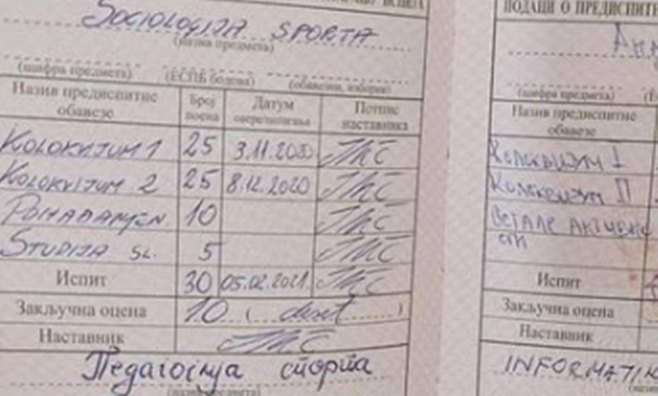 SOCIOLOGIJA SPORTA
(назив предмета)
(шифра предмета) (ЕСПБ бодова) (обавезни, изборни)
Назив предиспитне обавезе Број поена Датум Потпис наставника
KOLOKVIJUM 1 25 3.11.2020
KOLOKVIJUM 2 25 8.12.2020
10
STUDIJA SL. 5
Испит 30 05.02.2021.
Закључна оцена 10 ( deset )
Наставник
Педагогија спорта
(назив предмета)
ПОДАЦИ О ПРЕДИСПИТН
(шифра предмета)
Назив предиспитне обавезе
КОЛОКВИЈУМ I
КОЛОКВИЈУМ II
ОСТАЛЕ АКТИВНО
СТИ
Испит
Закључна оцена
Наставник
INFORMATIK